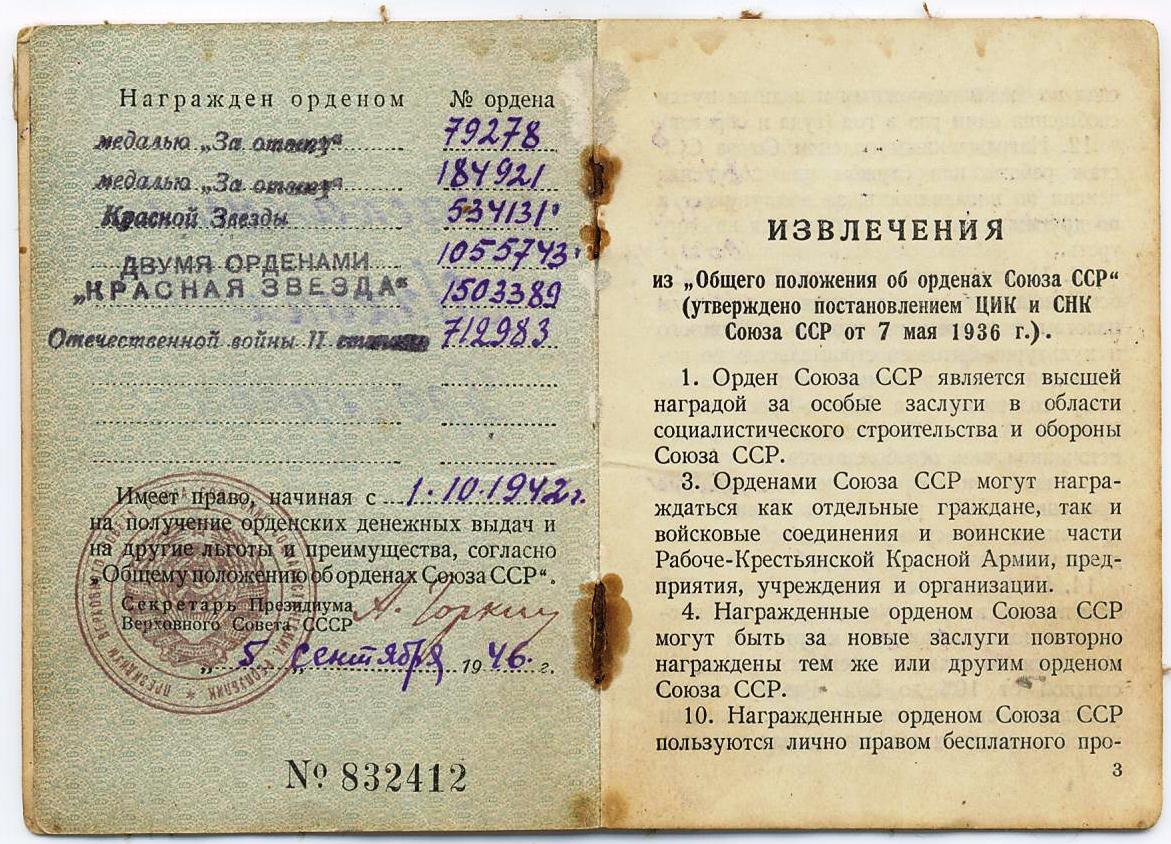 Награжден орденом № ордена
медалью „За отвагу“ 79278
медалью „За отвагу“ 184921
Красной Звезды 534131
ДВУМЯ ОРДЕНАМИ 1055743
„КРАСНАЯ ЗВЕЗДА“ 1503389
Отечественной войны II степени 712983
Имеет право, начиная с 1·10·1942г.
на получение орденских денежных выдач и
на другие льготы и преимущества, согласно
„Общему положению об орденах Союза ССР“.
Секретарь Президиума А. Горкин
Верховного Совета СССР
„5„ Сентября 1946. г.
№ 832412
ИЗВЛЕЧЕНИЯ
из „Общего положения об орденах Союза ССР“
(утверждено постановлением ЦИК и СНК
Союза ССР от 7 мая 1936 г.).
1. Орден Союза ССР является высшей
наградой за особые заслуги в области
социалистического строительства и обороны
Союза ССР.
3. Орденами Союза ССР могут награ-
ждаться как отдельные граждане, так и
войсковые соединения и воинские части
Рабоче-Крестьянской Красной Армии, пред-
приятия, учреждения и организации.
4. Награжденные орденом Союза ССР
могут быть за новые заслуги повторно
награждены тем же или другим орденом
Союза ССР.
10. Награжденные орденом Союза ССР
пользуются лично правом бесплатного про-
3